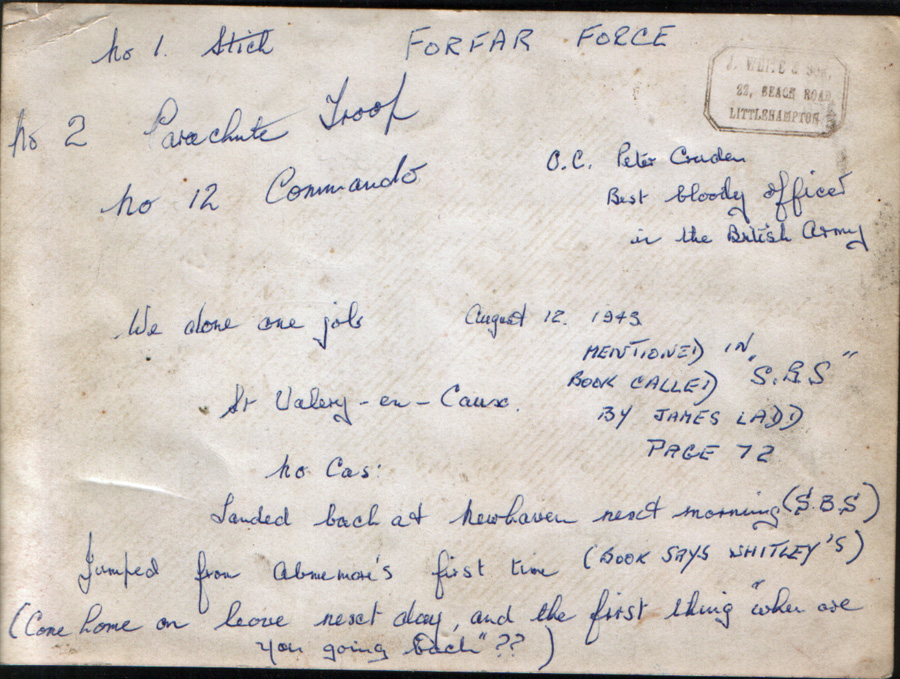 No 1. Stick FORFAR FORCE
J. WHITE & SON,
22, BEACH ROAD,
LITTLEHAMPTON
No 2 Parachute Troop
No 12 Commando
O.C. Peter Cruden
Best bloody officer
in the British Army
We done one job August 12. 1943
MENTIONED IN
BOOK CALLED "S.B.S"
BY JAMES LADD
PAGE 72
St Valery-en-Caux.
No Cas:
Landed back at Newhaven next morning (S.B.S)
Jumped from first time (BOOK SAYS WHITLEY'S)
(Come home on leave next day, and the first thing "when are
you going back"??)